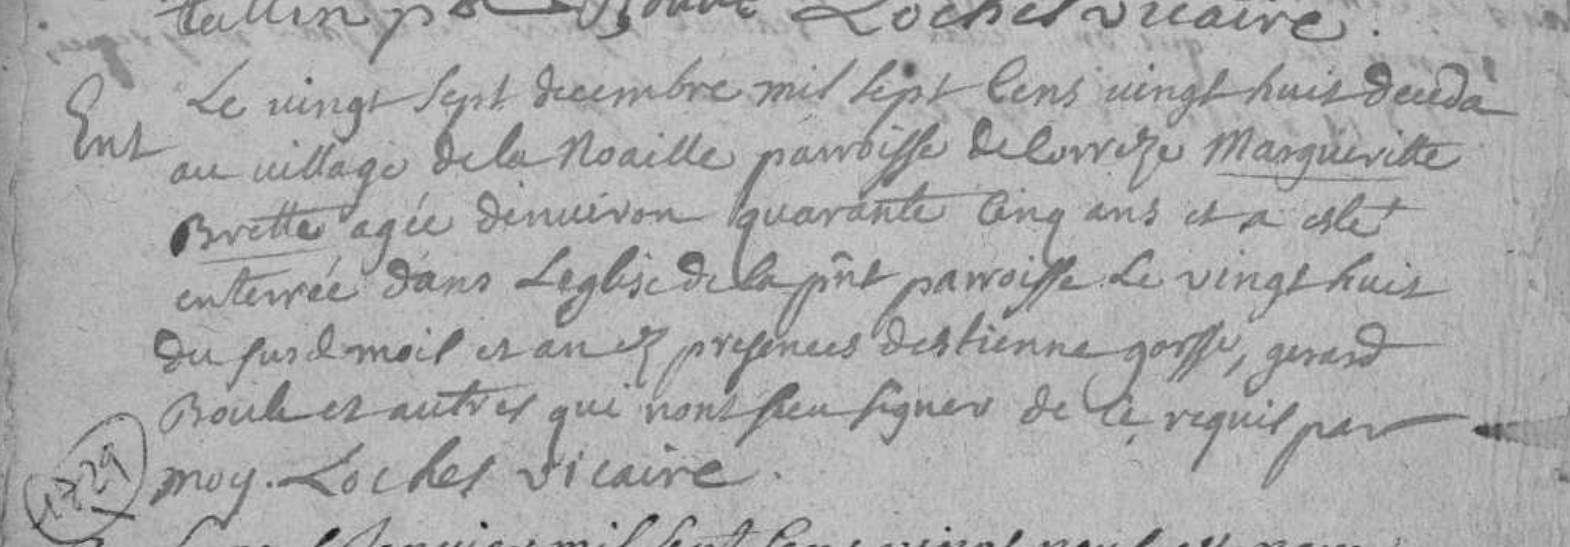 Loches vicaire.
Ent
Le vingt sept decembre mil sept cens vingt huit deceda
au village de la Noaille parroisse de Correze Margueritte
Brette agée denviron quarante cinq ans et a esté
enterrée dans Leglise de la pñt parroisse Le vingt huit
du susd mois et an ez presences destienne gorsse, gerard
Boule et autres qui nont sceu signer de ce requis par
moy. Loches vicaire.
1729